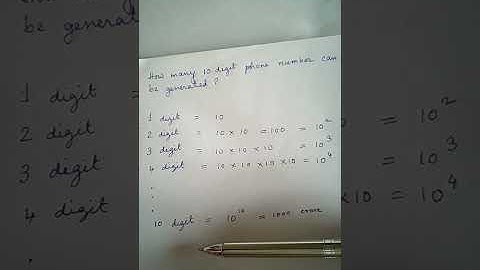 How many 10 digit phone number can
be generated?
1 digit = 10
2 digit = 10 × 10 = 100 = 10²
3 digit = 10 × 10 × 10 = 10³
4 digit = 10 × 10 × 10 × 10 = 10⁴
.
.
.
10 digit = 10¹⁰ = 1000 crore